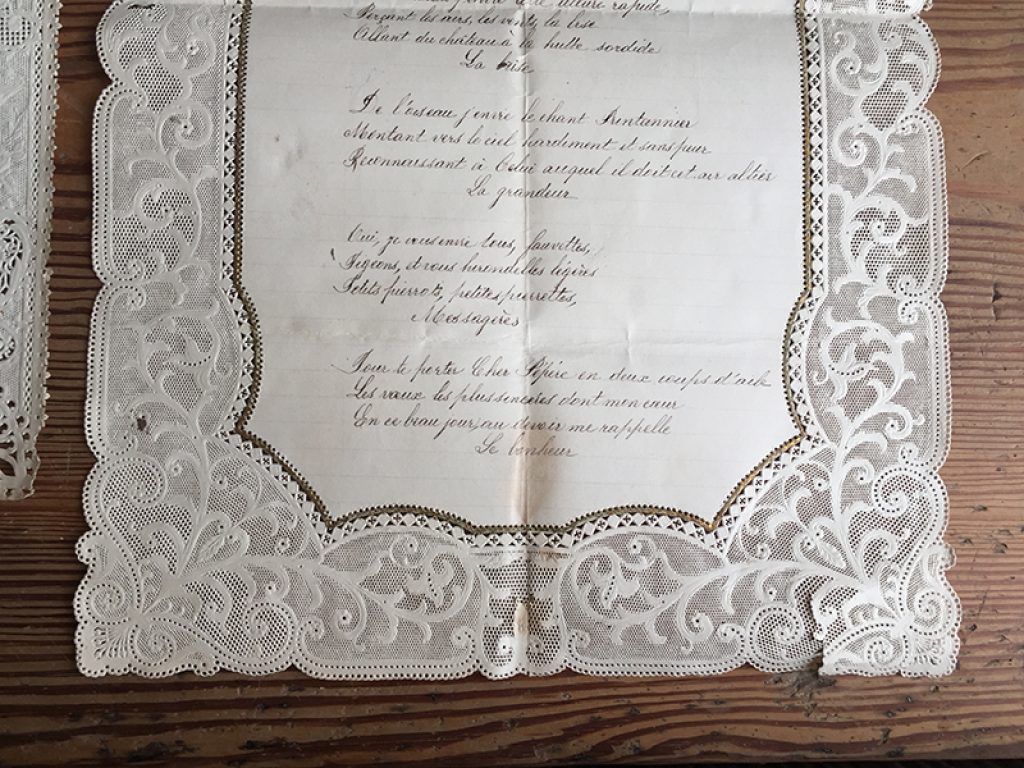 allure rapide,
Perçant les airs, les vents, la brise
Allant du château à la hutte sordide
La
De l'oiseau j'envie le chant Printannier
Montant vers le ciel hardiment et sans peur
Reconnaissant à Celui auquel il doit cet air altier
La grandeur
Oui, je vous envie tous, fauvettes,
Pigeons, et vous hirendelles légères
Petits pierrots, petites pierrettes,
Messagères
Pour te porter Cher Pépère en deux coups d'aile
Les vœux les plus sincères dont mon cœur
En ce beau jour, au devoir me rappelle
Le bonheur